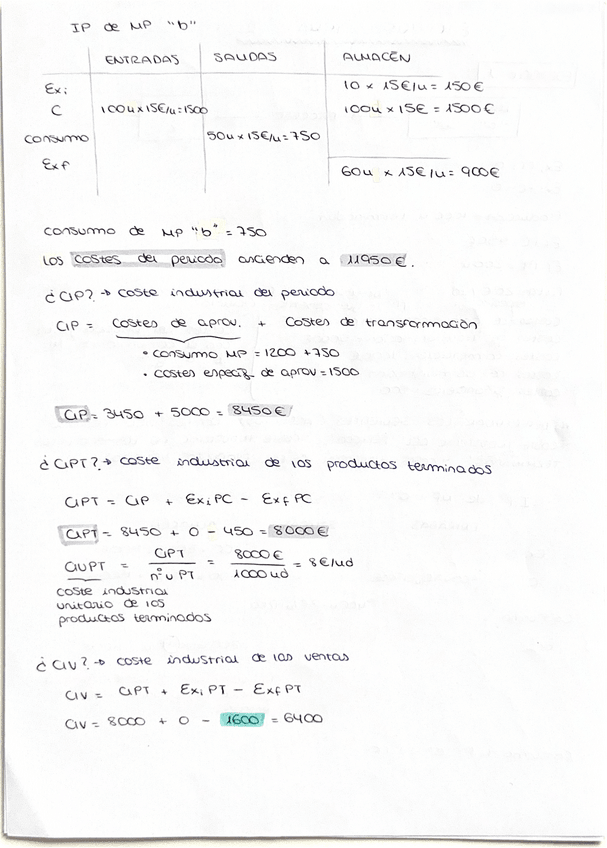 IP de MP "b"
ENTRADAS SALIDAS ALMACÉN
Exi 10 x 15€/u = 150€
C 100u x 15€/u = 1500 100u x 15€ = 1500€
consumo 50u x 15€/u = 750
Exf 60u x 15€/u = 900€
consumo de MP "b" = 750
Los costes del periodo ascienden a 11950€.
¿CIP? → coste industrial del periodo
CIP = costes de aprov. + costes de transformación
• consumo MP = 1200 + 750
• costes especif. de aprov = 1500
CIP = 3450 + 5000 = 8450€
¿CIPT? → coste industrial de los productos terminados
CIPT = CIP + Exi PC - Exf PC
CIPT = 8450 + 0 - 450 = 8000€
CIUPT = CIPT / nº u PT = 8000€ / 1000 ud = 8€/ud
coste industrial
unitario de los
productos terminados
¿CIV? → coste industrial de las ventas
CIV = CIPT + Exi PT - Exf PT
CIV = 8000 + 0 - 1600 = 6400